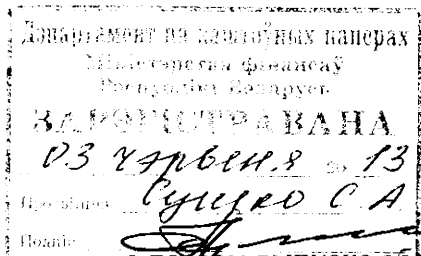 Дэпартамент па каштоўных паперах
Міністэрства фінансаў
Рэспублікі Беларусь
ЗАРЭГІСТРАВАНА
03 чэрвеня 20 13
Прозвішча Сушко С А
Подпіс